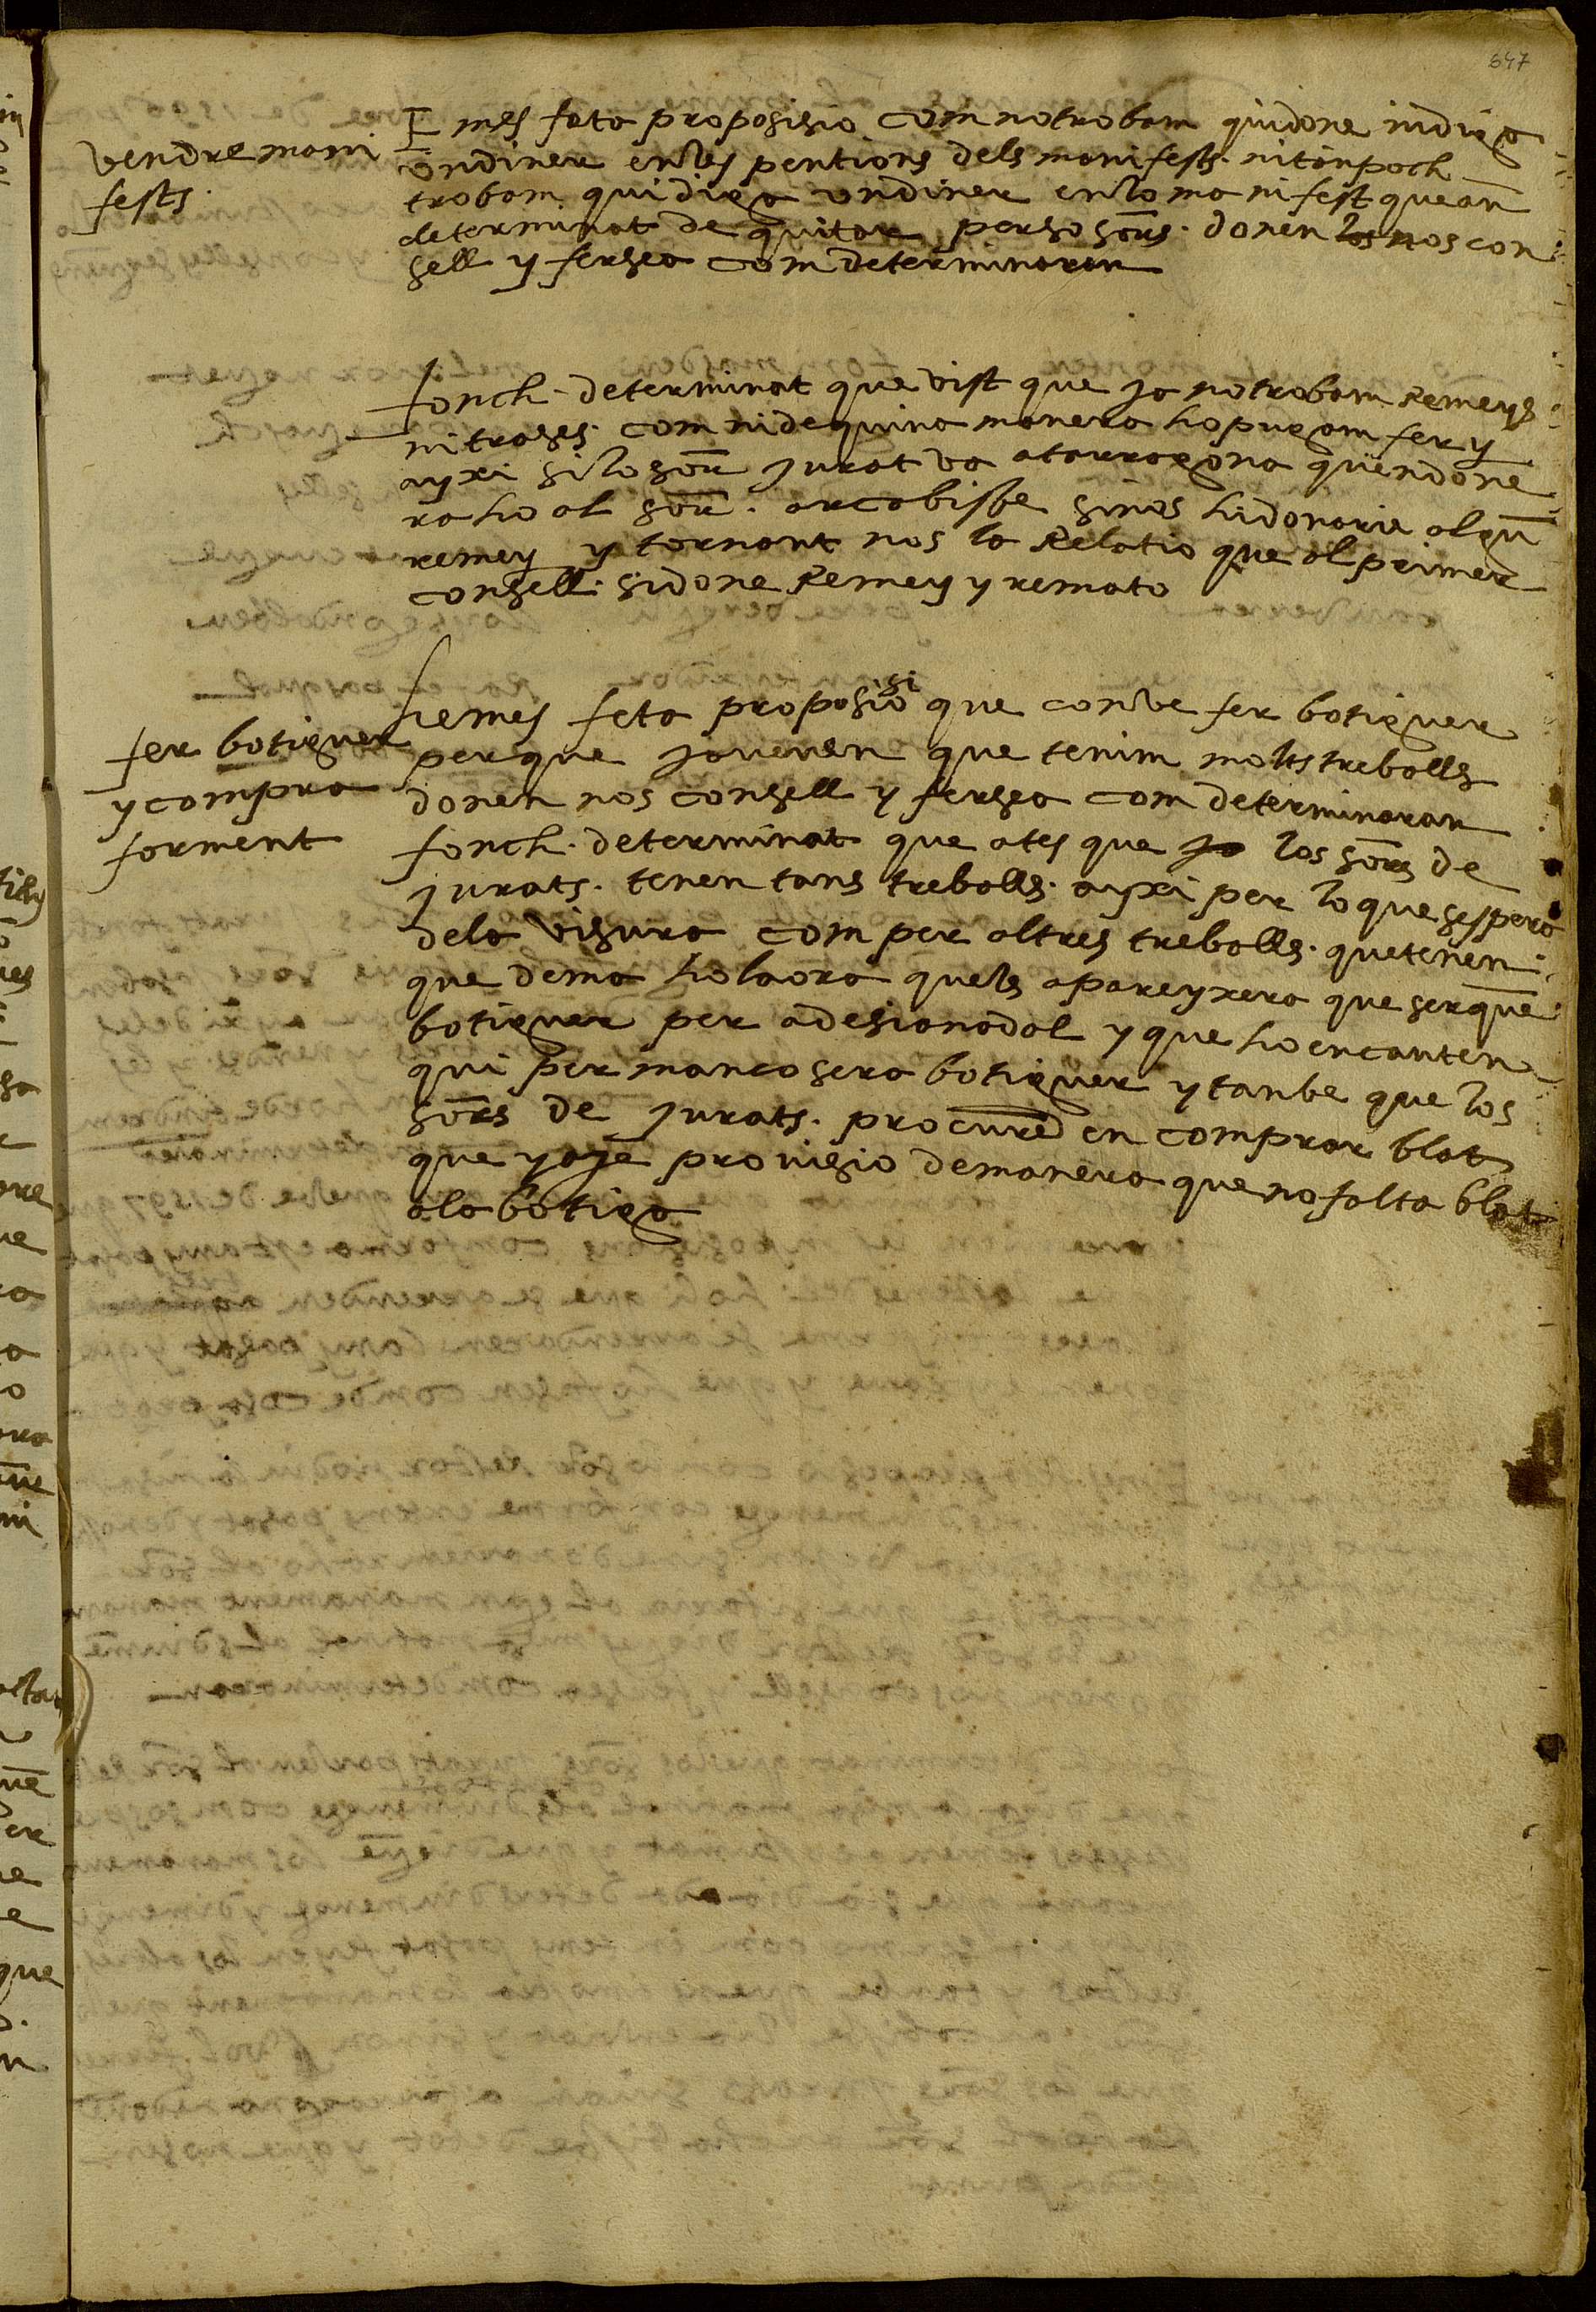 847
vendre mani
fests.
E mes feta proposisio com no trobam qui done ni diga
un diner en les pentions dels manifests. ni tanpoch
trobam qui diga un diner en lo manifest que an
determinat de quitar per so sors. donen los nos con
sell y fersea com determinaran
fonch. determinat que vist que ja no trobam Remeys
ni trases. com ni de quina manera ho pugam fer y
ayxi si lo sor Jurat va a tarragona quen done
raho al sor. arcabisbe sinos hi donaria algu
remey y tornant nos la Relatio que al primer
consell. si done Remey y remato
fer botiguer
y compra
forment
hemes feta proposisio si que conve fer botiguer
perque ja veuen que tenim molts treballs
donen nos consell y fersea com determinaran
fonch. determinat que ates que ja los sors de
jurats. tenen tans treballs. ayxi per lo que sespera
de la visura com per altres treballs. que tenen
que dema ho la ora quels apareyxera que serque
botiguer per a desi a nadal y que ho encanten
qui per manco sera botiguer y tanbe que los
sors de Jurats. procuren en comprar blat
que y aje provisio de manera que no falta blat
a la botiga